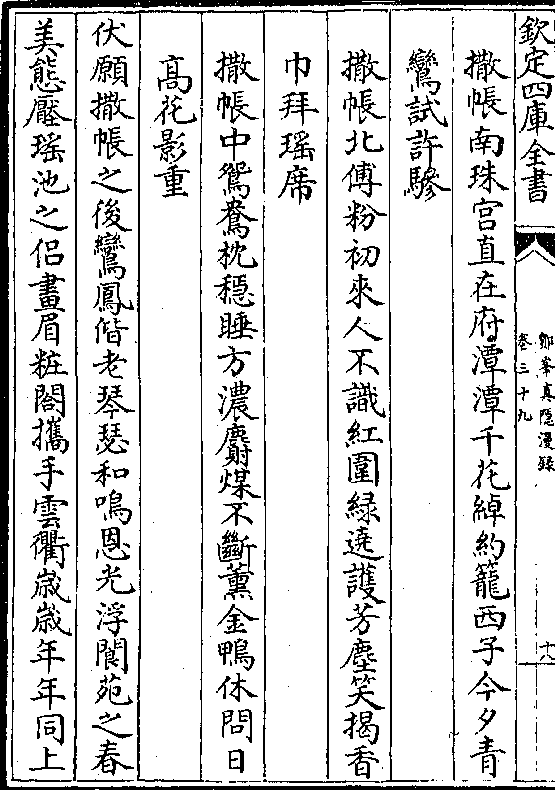 欽定四庫全書
鄮峯真隠漫録
卷三十九
十八
撒帳南珠宫直在府潭潭千花綽約籠西子今夕青
鸞試許驂
撒帳北傅粉初來人不識紅圍緑遶護芳塵笑揭香
巾拜瑶席
撒帳中鴛鴦枕穏睡方濃麝煤不斷薰金鴨休問日
髙花影重
伏願撒帳之後鸞鳳偕老琴瑟和鳴恩光浮閬苑之春
美態壓瑶池之侣畫眉粧閣攜手雲衢歲歲年年同上